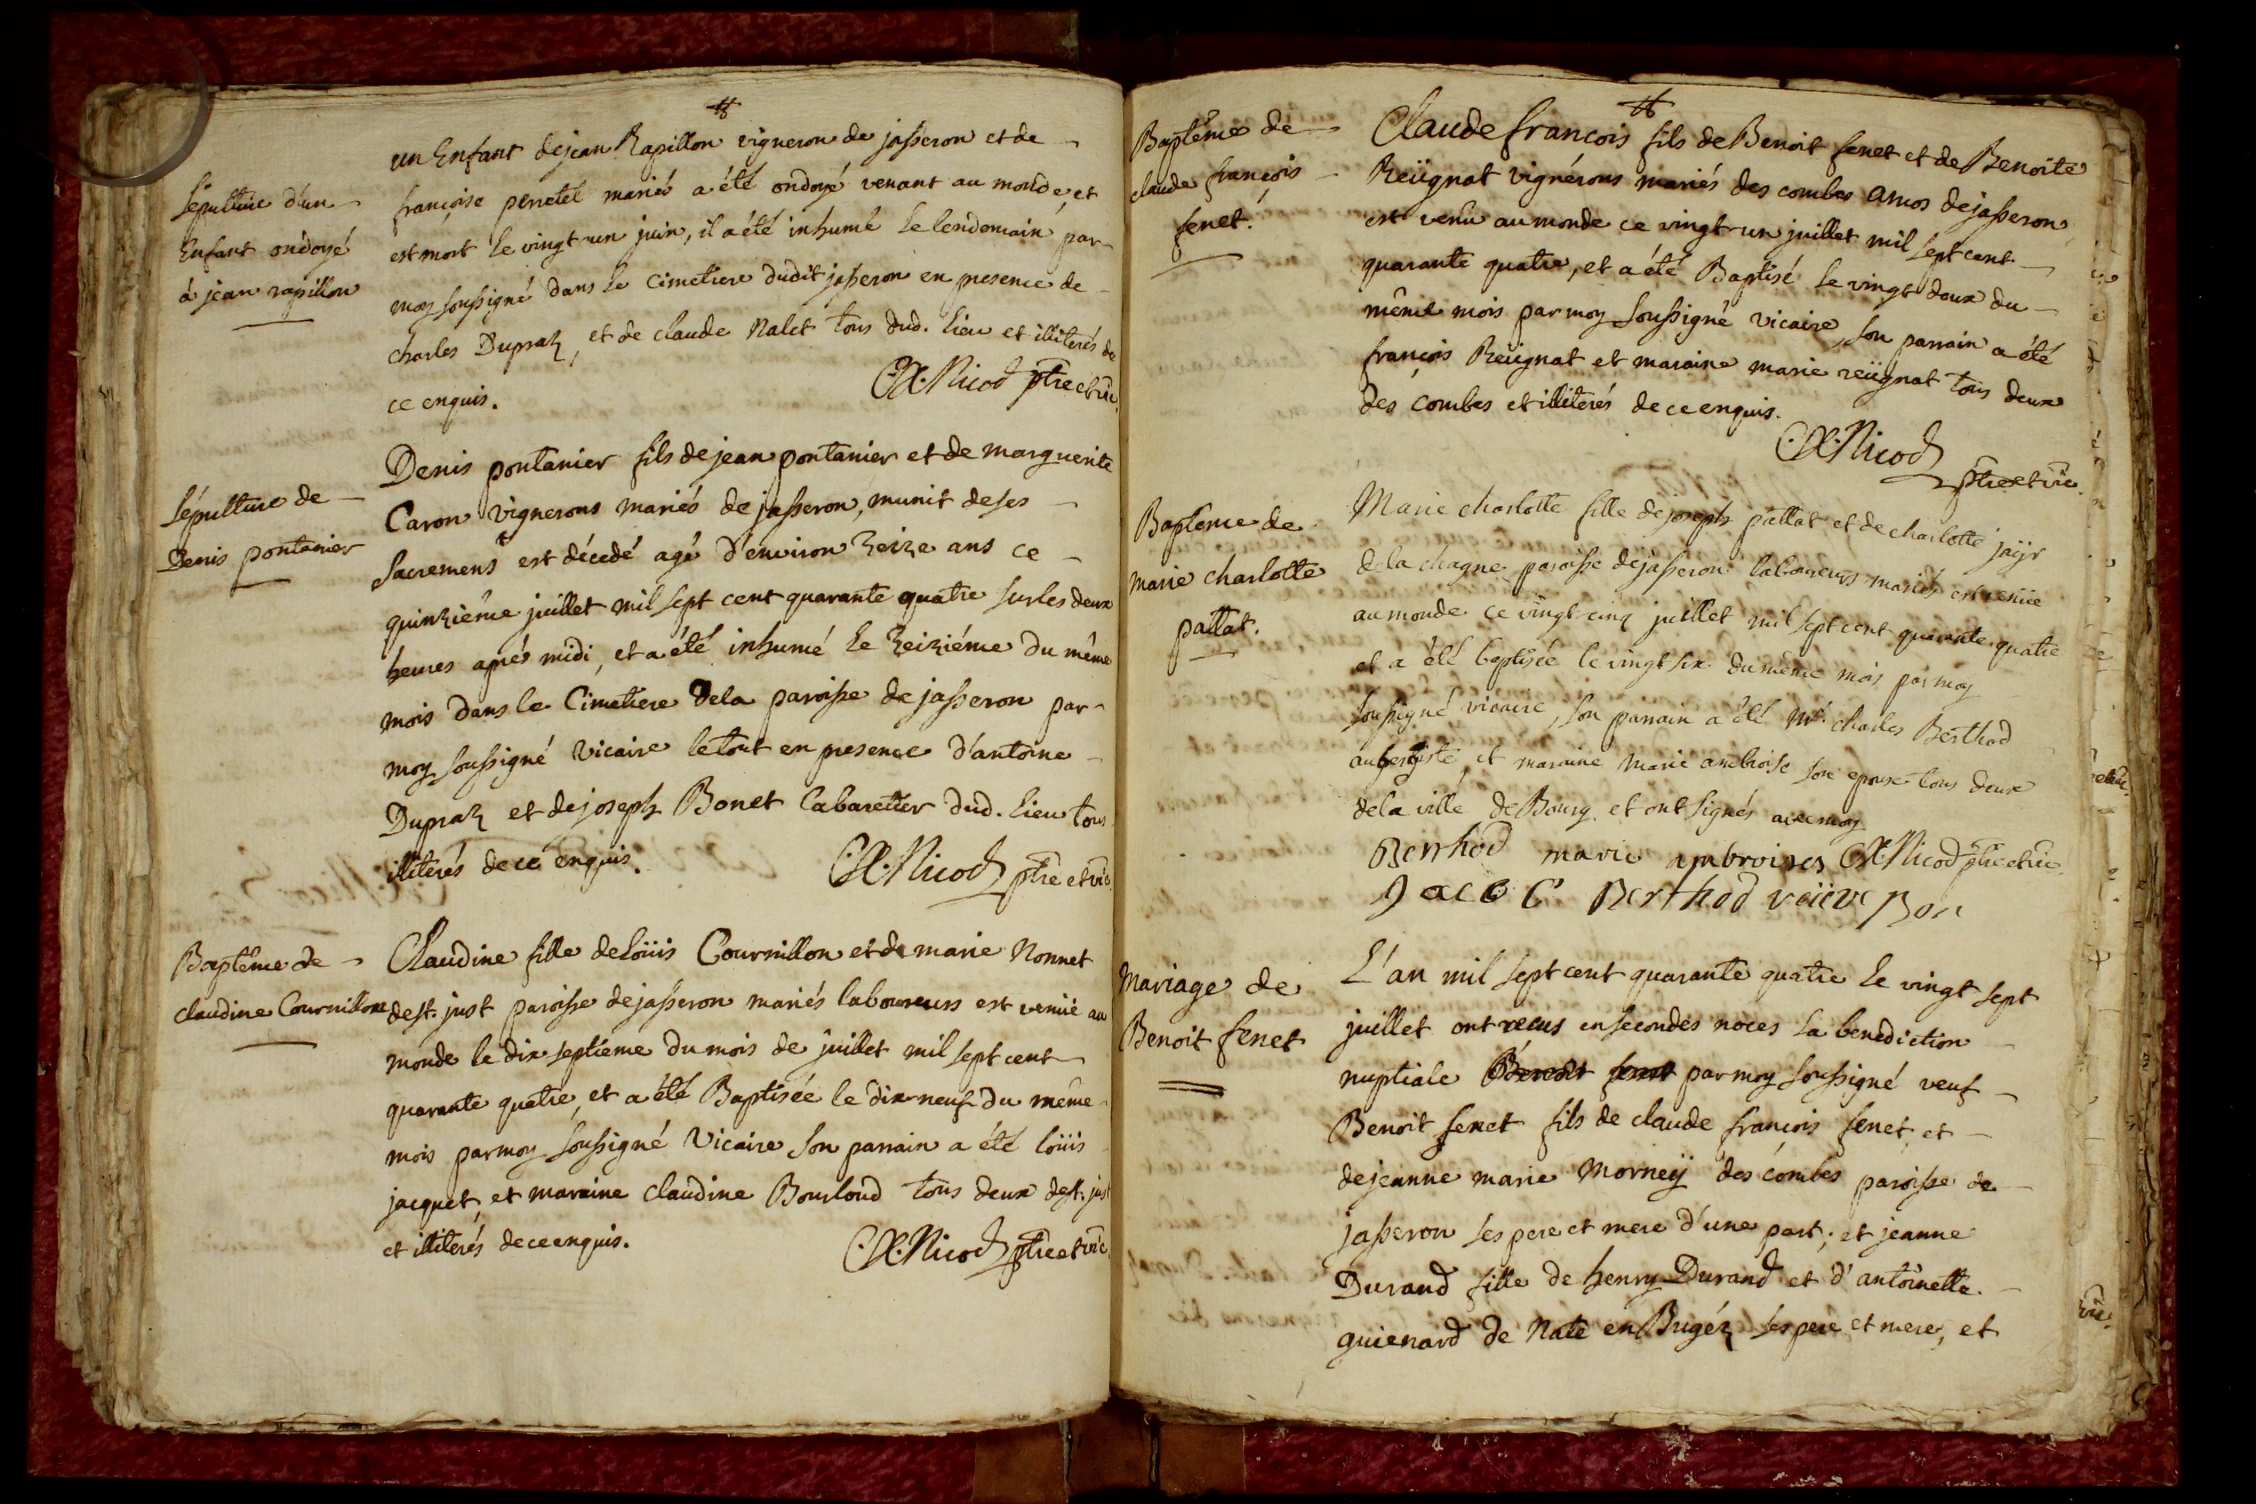 Sépulture d'un
Enfant ondoyé
à jean rapillon
un Enfant de jean Rapillon vigneron de jasseron et de
françoise perretel mariés a été ondoyé venant au monde, et
est mort le vingt-un juin, il a été inhumé le lendemain par
moy soussigné dans le Cimetiere dudit jasseron en presence de
charles Dupraz, et de claude Nalet tous dud. Lieu et illiterés de
ce enquis.
CX. Nicod ptre et vic.
Sépulture de
Denis pontanier
Denis pontanier fils de jean pontanier et de marguerite
Caron vignerons mariés de jasseron, munit de ses
Sacremens est décedé agé d'environ zeize ans ce
quinziéme juillet mil sept cent quarante quatre sur les deux
heures aprés midi, et a été inhumé le zeiziéme du même
mois dans le Cimetiere de la paroisse de jasseron par
moy soussigné vicaire le tout en presence d'antoine
Dupraz et de joseph Bonet Cabaretier dud. Lieu tous
illiterés de ce enquis.
CX. Nicod ptre et vic.
Baptême de
claudine Cournillon
Claudine fille de loüis Cournillon et de marie Nonnet
de st. just paroisse de jasseron mariés laboureurs est venüe au
monde le dix septieme du mois de juillet mil sept cent
quarante quatre, et a été Baptisée le dix neuf du même
mois par moy soussigné Vicaire son parrain a été loüis
jacquet, et maraine claudine Bourloud tous deux de st. just
et illiterés de ce enquis.
CX. Nicod ptre et vic.
Baptême de
claude françois
fenet.
Claude françois fils de Benoit fenet et de Benoite
Reüignat vignérons mariés des combes amos de jasseron
est venu au monde ce vingt-un juillet mil sept cent
quarante quatre, et a été Baptisé le vingt deux du
même mois par moy soussigné vicaire, son parrain a été
françois Reüignat et maraine marie reüignat tous deux
des combes et illiterés de ce enquis.
CX. Nicod
ptre et vic.
Baptême de
marie charlotte
pallat.
Marie charlotte fille de joseph pallat et de charlotte jaÿr
de la chagne paroisse de jasseron laboureurs mariés est venüe
au monde ce vingt cinq juillet mil sept cent quarante quatre
et a été baptisée le vingt six du même mois par moy
soussigné vicaire, son parrain a été Mr. charles Berthod
aubergiste, et maraine marie ambroise son epouse tous deux
de la ville de Bourg et ont signés avec moy
Berrhod marie ambroises CX. Nicod ptre et vic.
Berthod veüve Bon
Mariage de
Benoit fenet
L'an mil sept cent quarante quatre le vingt sept
juillet ont recus en secondes noces la benediction
nuptiale Benoit fenet par moy soussigné veuf
Benoit fenet fils de claude françois fenet et
de jeanne marie Morneÿ des combes paroisse de
jasseron ses pere et mere d'une part, et jeanne
Durand fille de henry Durand et d'antoinette
guienard de Nate en Bugéz ses pere et mere, et